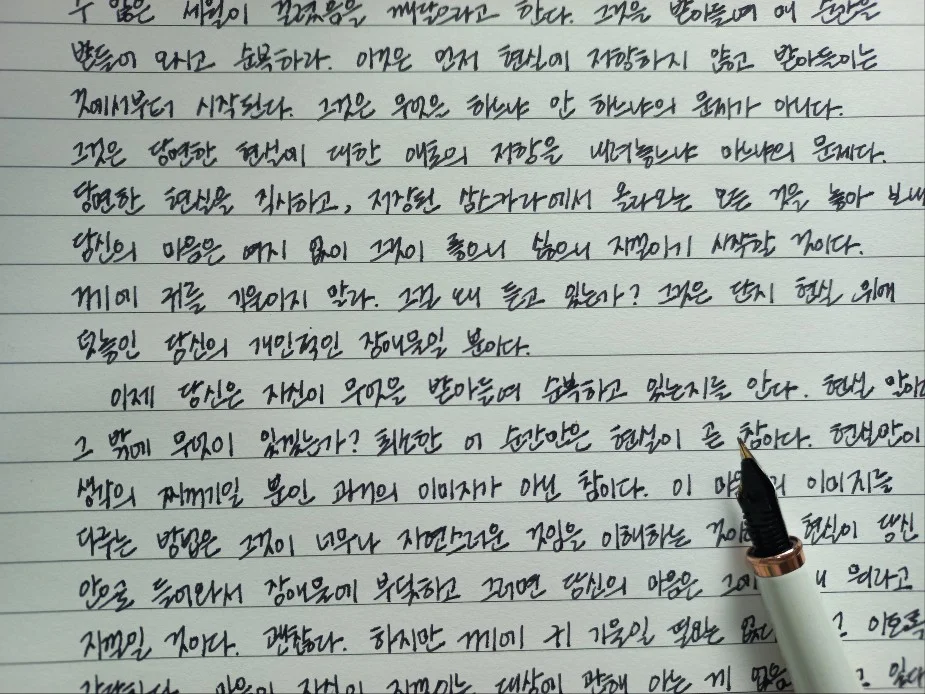 수 많은 세월이 걸렸음을 깨달으라고 한다. 그것을 받아들여 매 순간을
받들어 모시고 순복하라. 이것은 먼저 현실에 저항하지 않고 받아들이는
것에서부터 시작된다. 그것은 무엇을 하느냐 안 하느냐의 문제가 아니다.
그것은 당면한 현실에 대한 애초의 저항을 내려놓느냐 마느냐의 문제다.
당면한 현실을 직시하고, 저장된 삼스카라에서 올라오는 모든 것을 놓아 보내
당신의 마음은 여지 없이 그것이 좋으니 싫으니 지껄이기 시작할 것이다.
거기에 귀를 기울이지 말라. 그걸 왜 듣고 있는가? 그것은 단지 현실 위에
덧놓인 당신의 개인적인 장애물일 뿐이다.
이제 당신은 자신이 무엇을 받아들여 순복하고 있는지를 안다. 현실 말이
그 밖에 무엇이 있겠는가? 최소한 이 순간만은 현실이 곧 참이다. 현실만이
생각의 찌꺼기일 뿐인 과거의 이미지가 아닌 참이다. 이 이미지들
다루는 방법은 그것이 너무나 자연스러운 것임을 이해하는 현실이 당신
안으로 들어와서 장애물에 부딪히고 그러면 당신의 마음은 뭐라고
지껄일 것이다. 괜찮다. 하지만 거기에 귀 기울일 필요는 이토록
마음이 자신이 지껄이는 대상에 관해 아는 게 없음